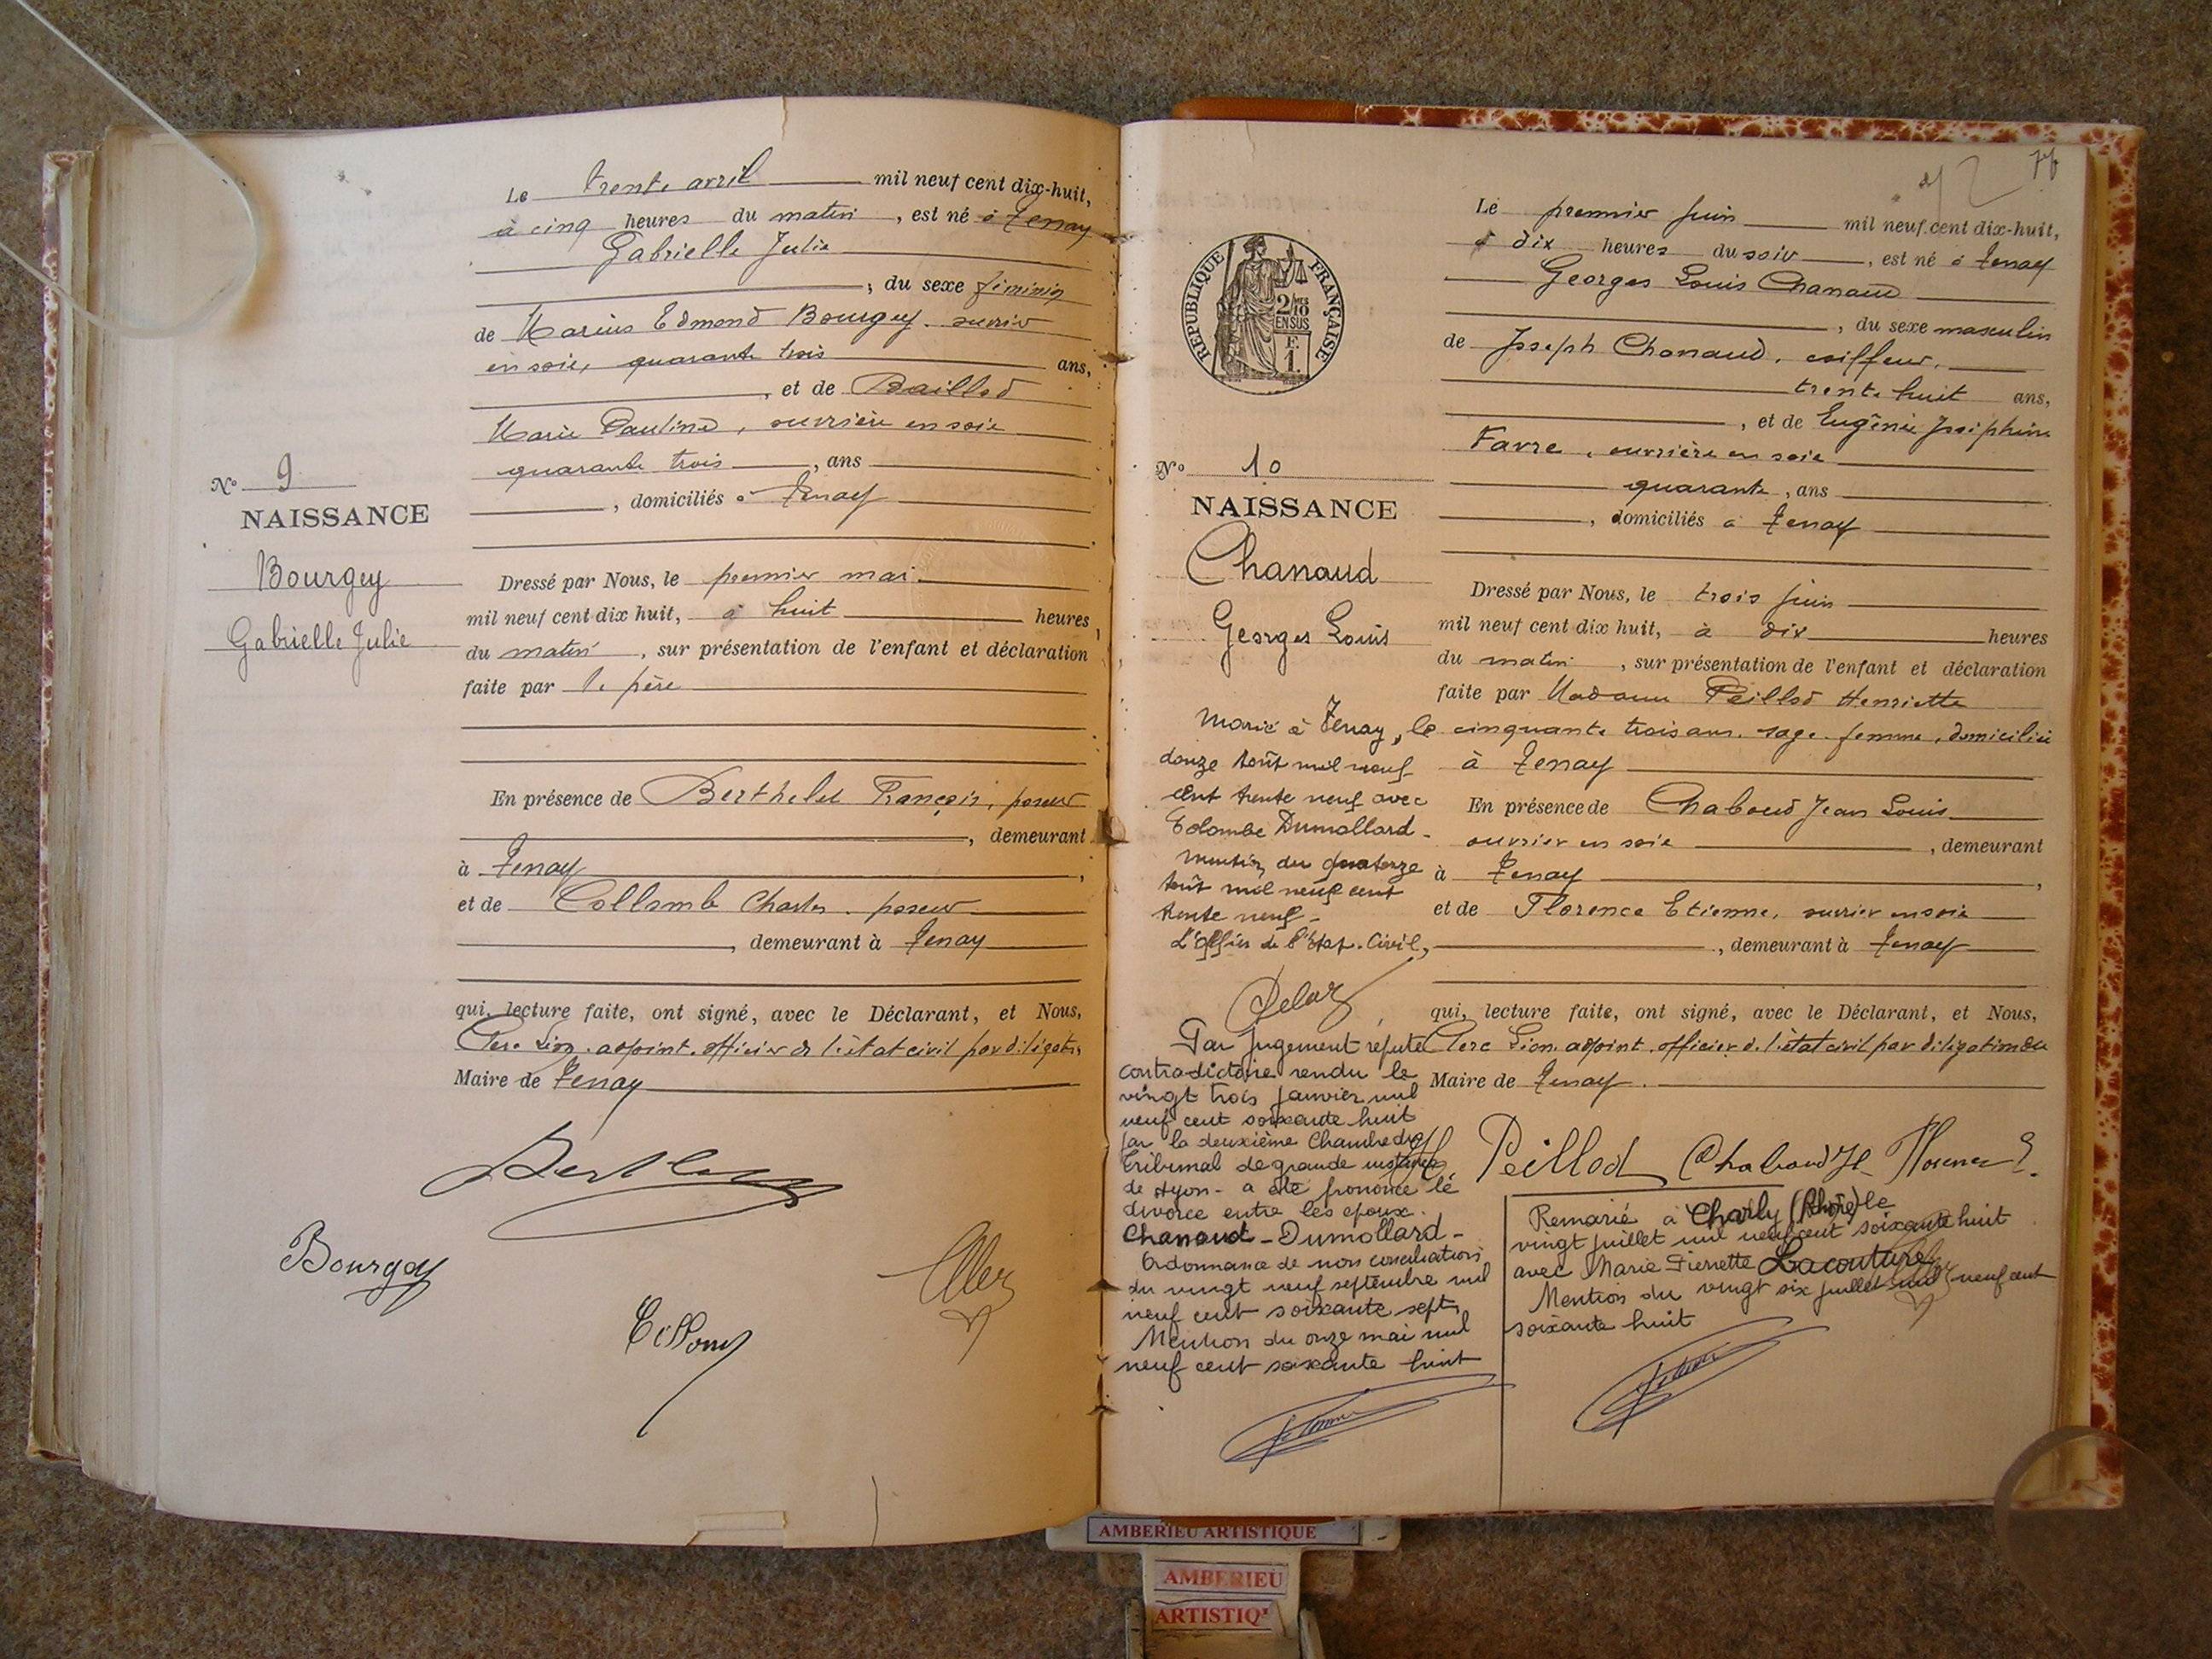 Le trente avril mil neuf cent dix-huit,
à cinq heures du matin, est né à Tenay
Gabrielle Julie
, du sexe féminin
de Marius Edmond Bourgey. ouvrier
en soie, quarante trois ans,
, et de Baillod
Marie Pauline, ouvrière en soie
quarante trois, ans
, domiciliés à Tenay
N° 9
NAISSANCE
Bourgey
Gabrielle Julie
Dressé par Nous, le premier mai
mil neuf cent dix huit, à huit heures
du matin, sur présentation de l'enfant et déclaration
faite par le père
En présence de Berthelet François, poseur
, demeurant
à Tenay,
et de Collomb Charles. poseur
, demeurant à Tenay
qui, lecture faite, ont signé, avec le Déclarant, et Nous,
Clerc Léon. adjoint. officier de l'état civil par délégation
Maire de Tenay
Bourgey
76
Le premier juin mil neuf cent dix-huit,
à dix heures du soir, est né à Tenay
Georges Louis Chanaud
, du sexe masculin
de Joseph Chanaud, coiffeur,
trente huit ans,
, et de Eugénie Joséphine
Favre, ouvrière en soie
quarante, ans
, domiciliés à Tenay
RÉPUBLIQUE FRANÇAISE
2/10 MES
EN SUS
F.
1.
N° 10
NAISSANCE
Chanaud
Georges Louis
Dressé par Nous, le trois juin
mil neuf cent dix huit, à dix heures
du matin, sur présentation de l'enfant et déclaration
faite par Madame Peillod Henriette
cinquante trois ans. sage-femme, domiciliée
à Tenay
En présence de Chaboud Jean Louis
ouvrier en soie, demeurant
à Tenay,
et de Florence Etienne, ouvrier en soie
, demeurant à Tenay
qui, lecture faite, ont signé, avec le Déclarant, et Nous,
Clerc Léon. adjoint. officier de l'état civil par délégation du
Maire de Tenay.
H. Peillod Chaboud JL Florence E.
Marié à Tenay, le
douze août mil neuf
cent trente neuf avec
Colombe Dumollard-
Mention du quatorze
août mil neuf cent
trente neuf-
L'officier de l'Etat-Civil,
Par jugement réputé
contradictoire rendu le
vingt trois janvier mil
neuf cent soixante huit
par la deuxième Chambre du
Tribunal de grande instance
de Lyon- a été prononcé le
divorce entre les époux.
Chanaud-Dumollard-
Ordonnance de non conciliation
du vingt neuf septembre mil
neuf cent soixante sept,
Mention du onze mai mil
neuf cent soixante huit
Remarié à Charly (Rhône) le
vingt juillet mil neuf cent soixante huit
avec Marie Pierrette Lacouture
Mention du vingt six juillet mil neuf cent
soixante huit
AMBERIEU ARTISTIQUE
AMBERIEU
ARTISTIQ